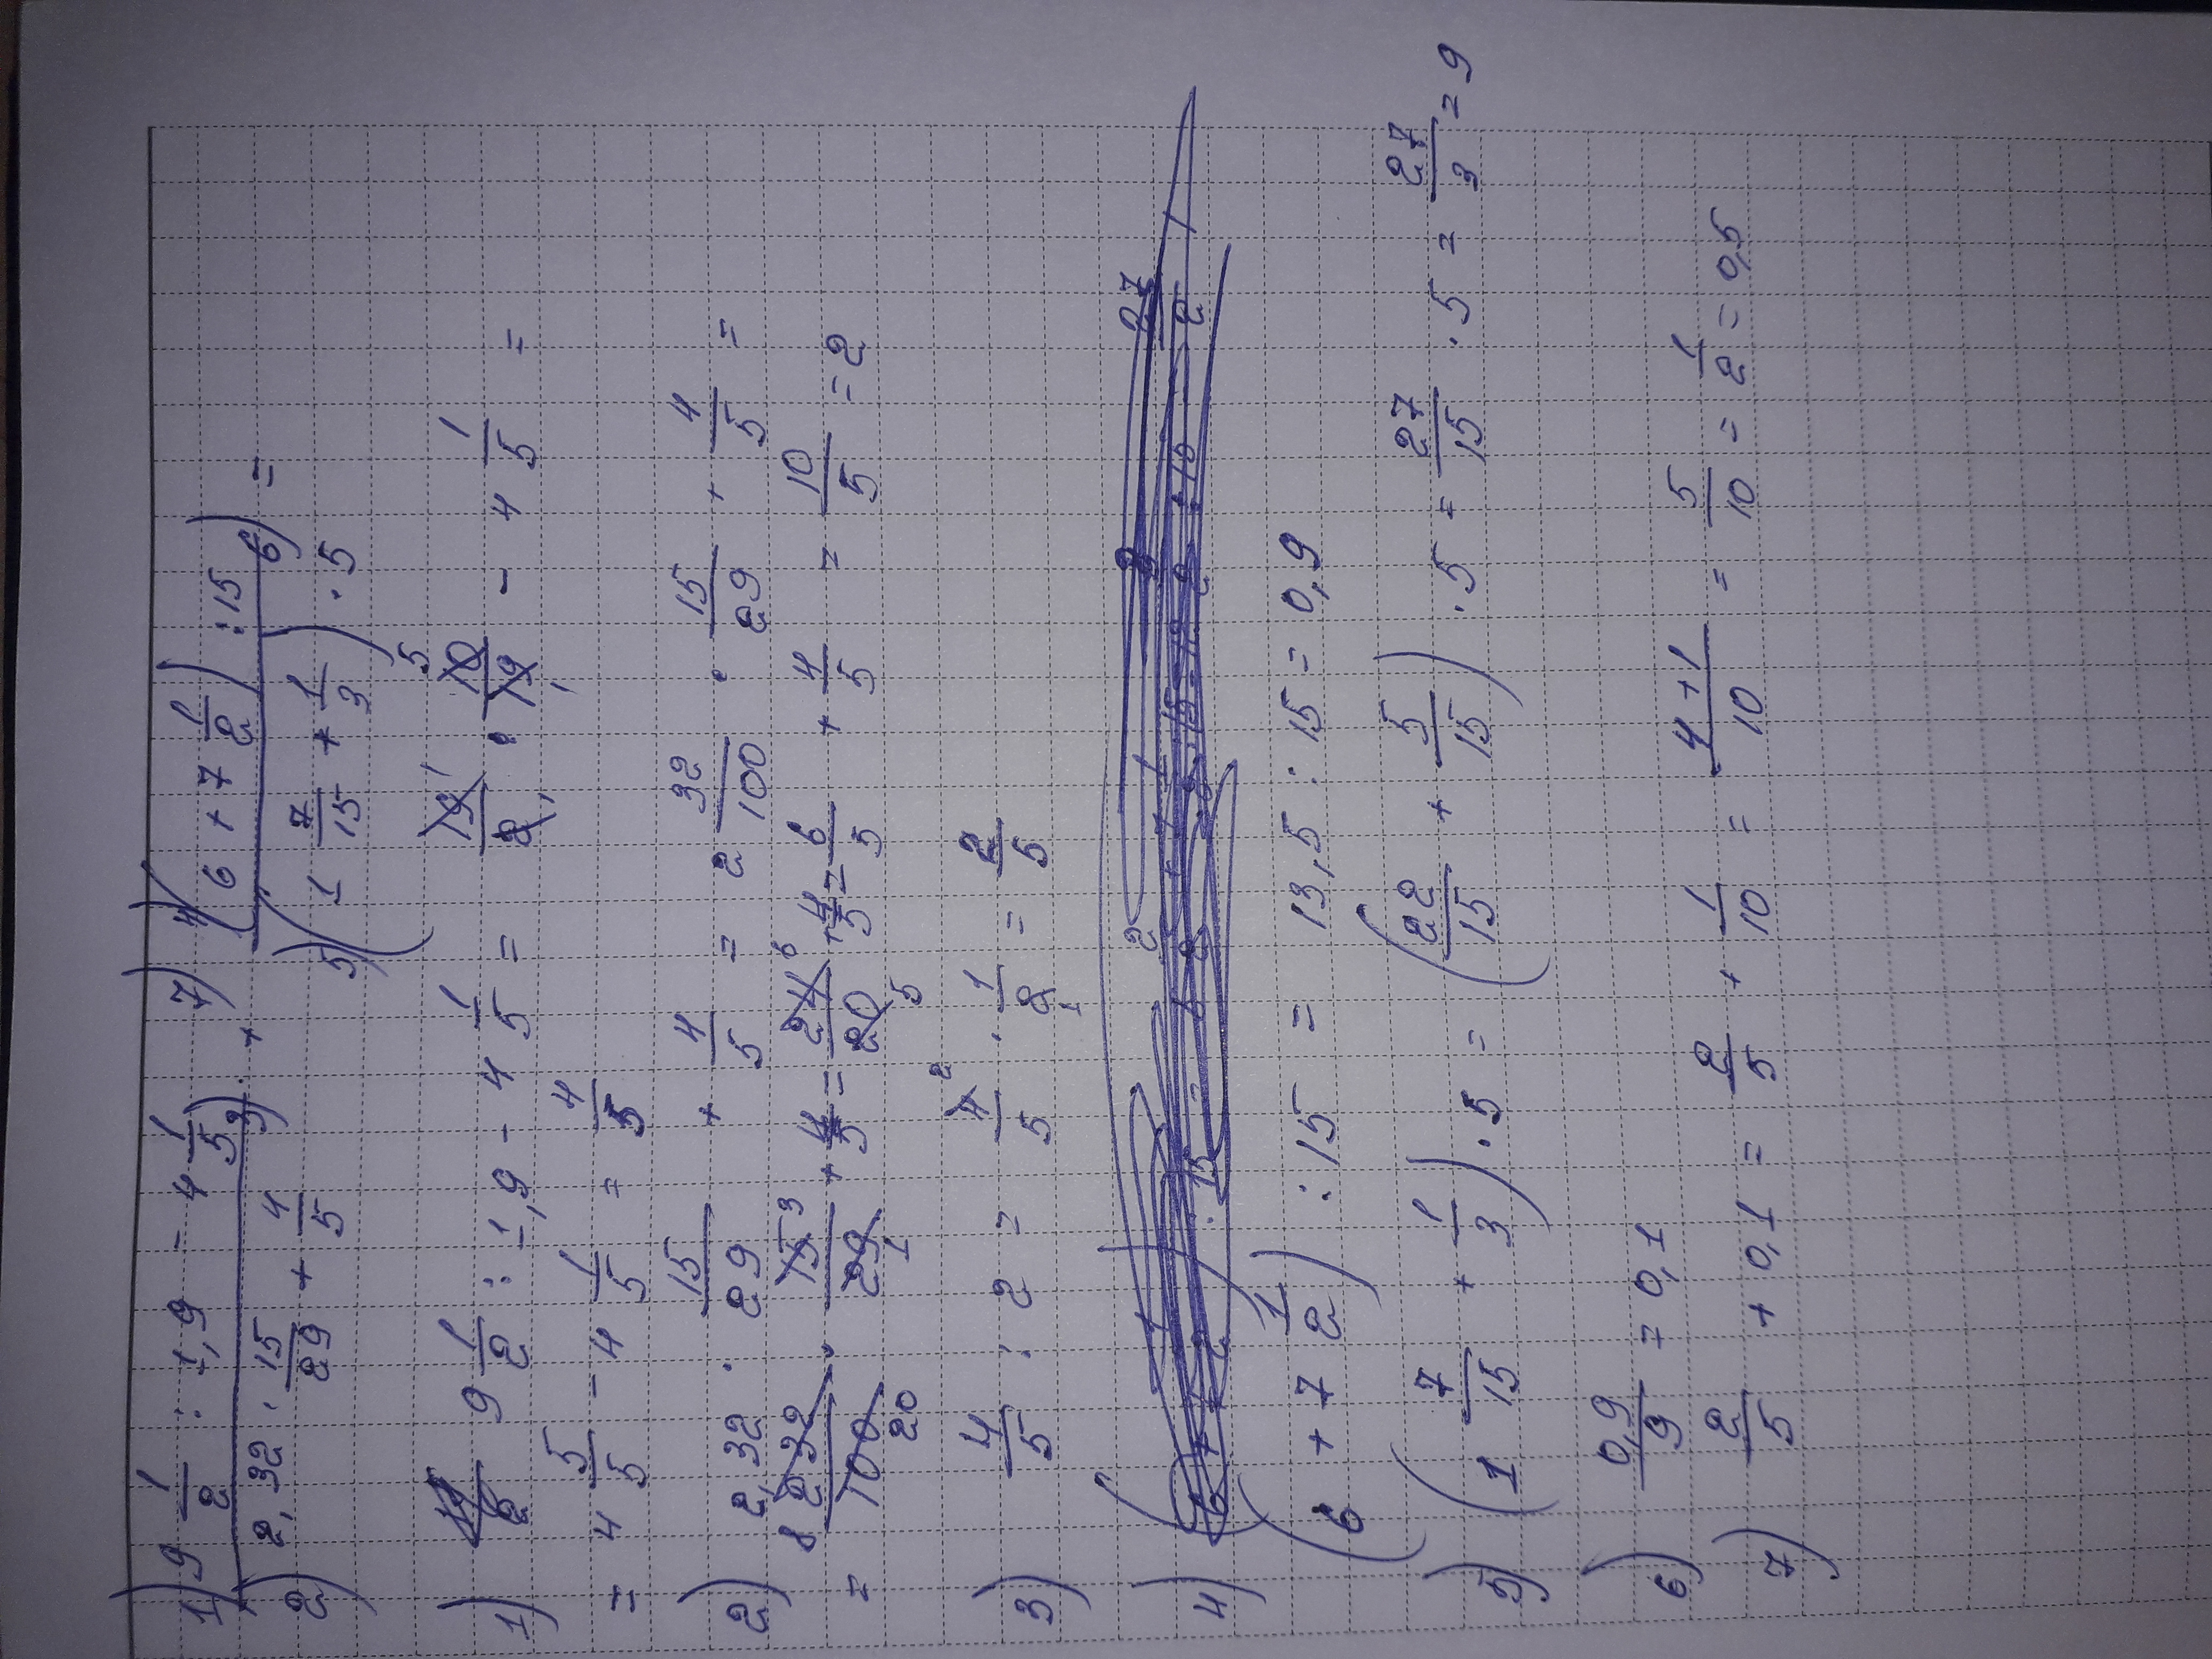 1) 9 1/2 : 1,9 - 4 1/5 7) 4) (6 + 7 1/2) : 15
3) + 6) =
2) 2,32 · 15/29 + 4/5 5) (1 7/15 + 1/3) · 5
1) 9 1/2 : 1,9 - 4 1/5 = 19/2 · 10/19 - 4 1/5 =
= 4 5/5 - 4 1/5 = 4/5
2) 2,32 · 15/29 + 4/5 = 2 32/100 · 15/29 + 4/5 =
= 232/100 · 15/29 + 4/5 = 24/20 + 4/5 = 6/5 + 4/5 = 10/5 = 2
3) 4/5 : 2 = 4/5 · 1/2 = 2/5
4)
(6 + 7 1/2) : 15 = 13,5 : 15 = 0,9
5) (1 7/15 + 1/3) · 5 = (22/15 + 5/15) · 5 = 27/15 · 5 = 27/3 = 9
6) 0,9/9 = 0,1
7) 2/5 + 0,1 = 2/5 + 1/10 = 4+1/10 = 5/10 = 1/2 = 0,5